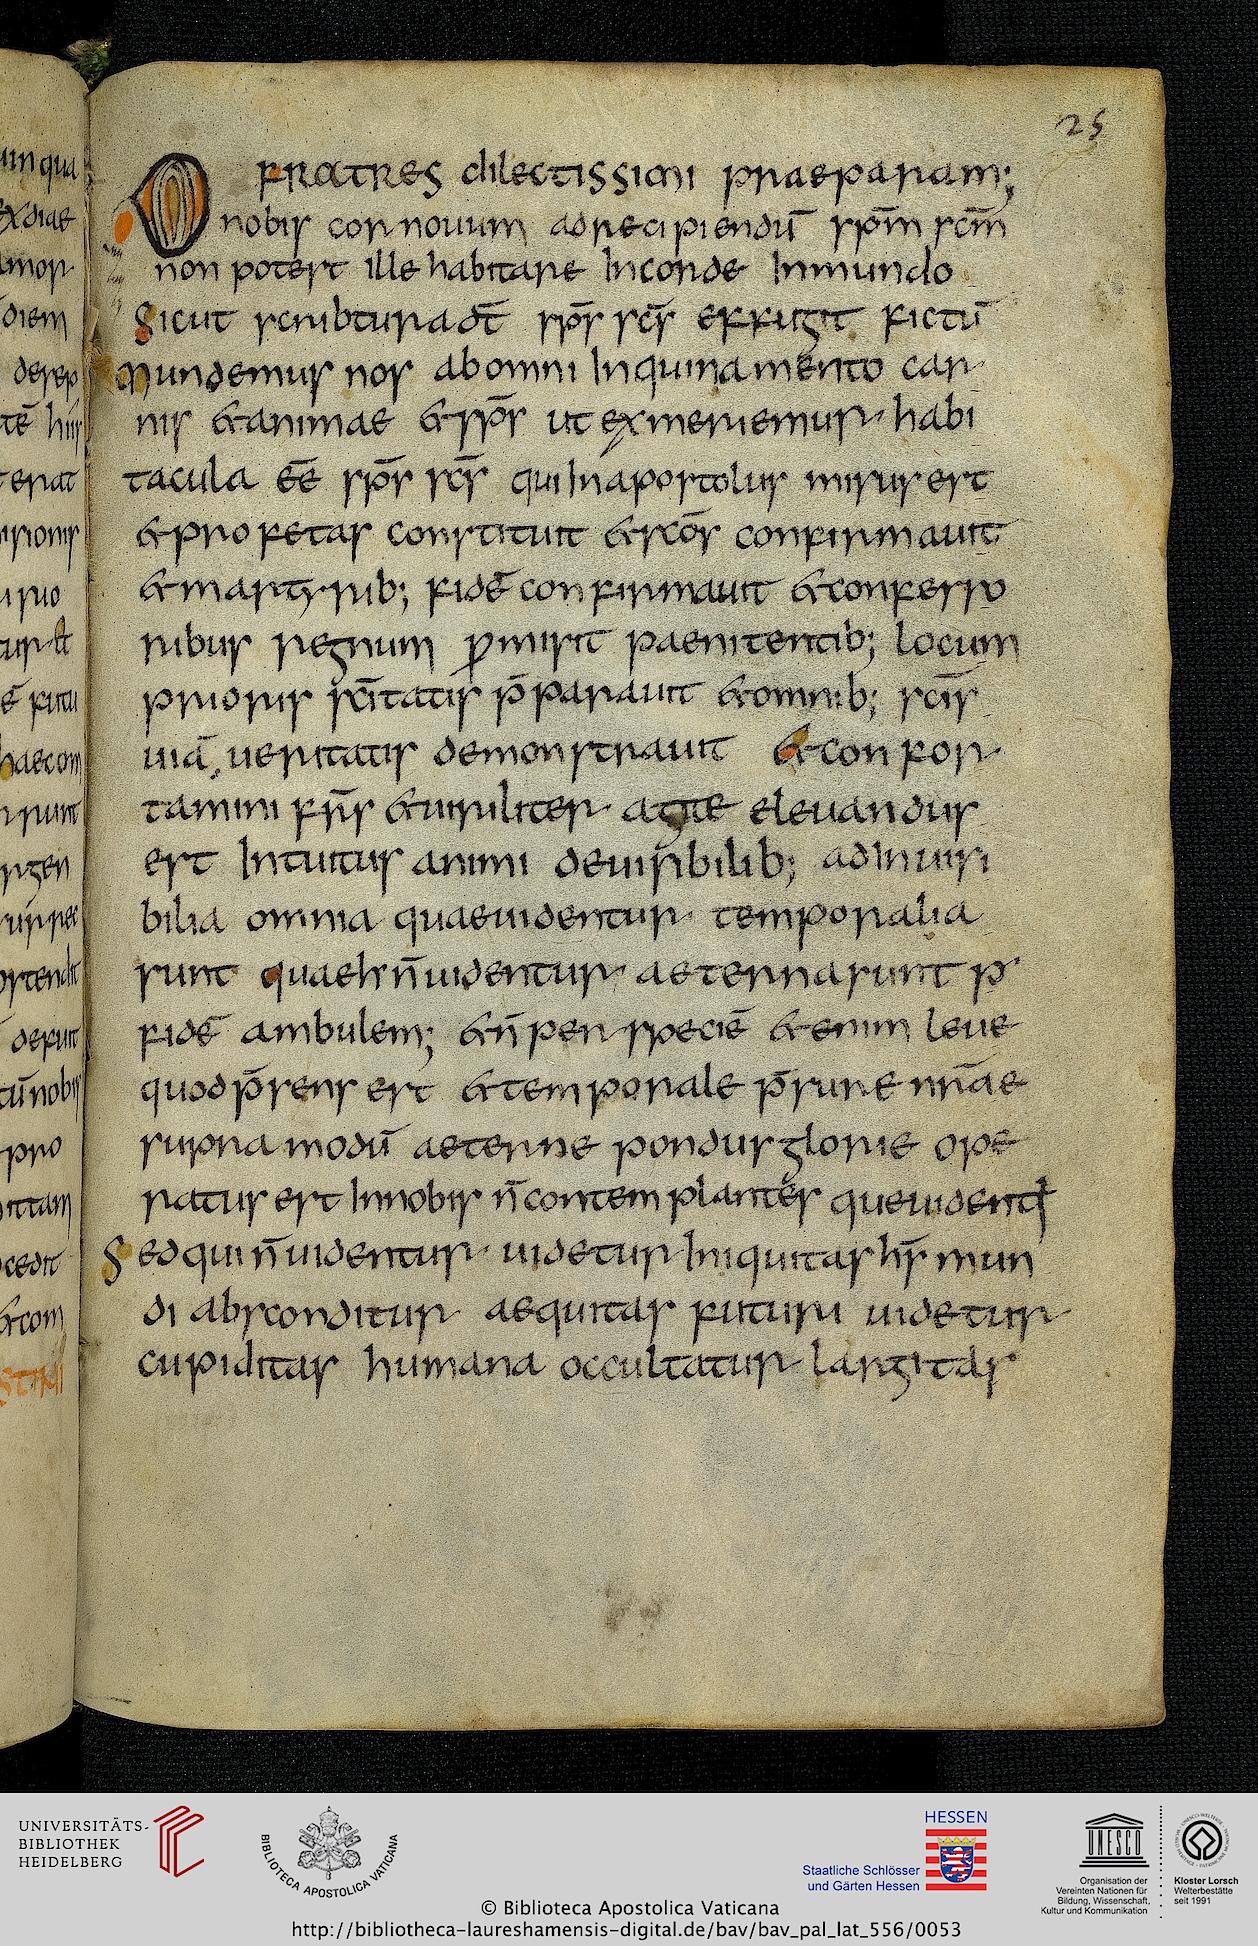 25
O FRATRES dilectissimi praeparam;
nobis cor nouum ad recipiendū spm̄ scm̄
non potest ille habitare in corde inmundo
Sicut scribtura dt̄ sps̄ scs̄ effugit fictū
Mundemus nos ab omni inquinamento car
nis & animae & sps̄ ut ex meriemur habi
tacula eē sps̄ scs̄ qui in apostolus misus est
& profetas constituit & scōs confirmauit
& martyrib; fidē confirmauit & confesso
ribus regnum ꝓmisit paenitentib; locum
prioris scītatis p̄parauit & omnib; scīs
uiā ueritatis demonstrauit & confor
tamini frs̄ & uiriliter agite eleuandus
est intuitus animi de uisibilib; ad inuisi
bilia omnia quae uidentur temporalia
sunt quae h n̄ uidentur aeterna sunt p̱
fidē ambulem; & n̄ per speciē & enim leue
quod p̄sens est & temporale p̄sure nr̄ae
supra modū aeterne pondus glorie ope
ratus est in nobis n̄ contemplantes que uidentꝗ
Sed qui n̄ uidentur uidetur iniquitas hs̄ mun
di absconditur aequitas futuri uidetur
cupiditas humana occultatur largitas
um qua
ex diae
amor
diem
desep
tē his
terat
isionis
suo
tur et
ē futu
haec om
sunt
rgen
ostendit
defunt
tū nobis
pro
ittam
cedit
& com
STIMI
UNIVERSITÄTS-
BIBLIOTHEK
HEIDELBERG
BIBLIOTECA APOSTOLICA VATICANA
HESSEN
Staatliche Schlösser
und Gärten Hessen
UNESCO
Organisation der
Vereinten Nationen für
Bildung, Wissenschaft,
Kultur und Kommunikation
Kloster Lorsch
Welterbestätte
seit 1991
© Biblioteca Apostolica Vaticana
http://bibliotheca-laureshamensis-digital.de/bav/bav_pal_lat_556/0053